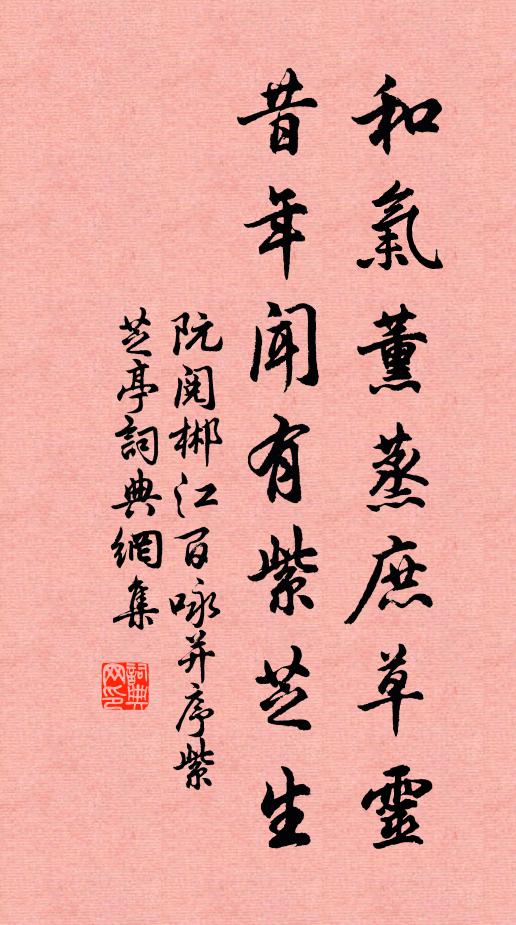 和氣薰蒸庶草靈
昔年聞有紫芝生
阮閱郴江百咏并序紫
芝亭詞典網集
詞典
网印